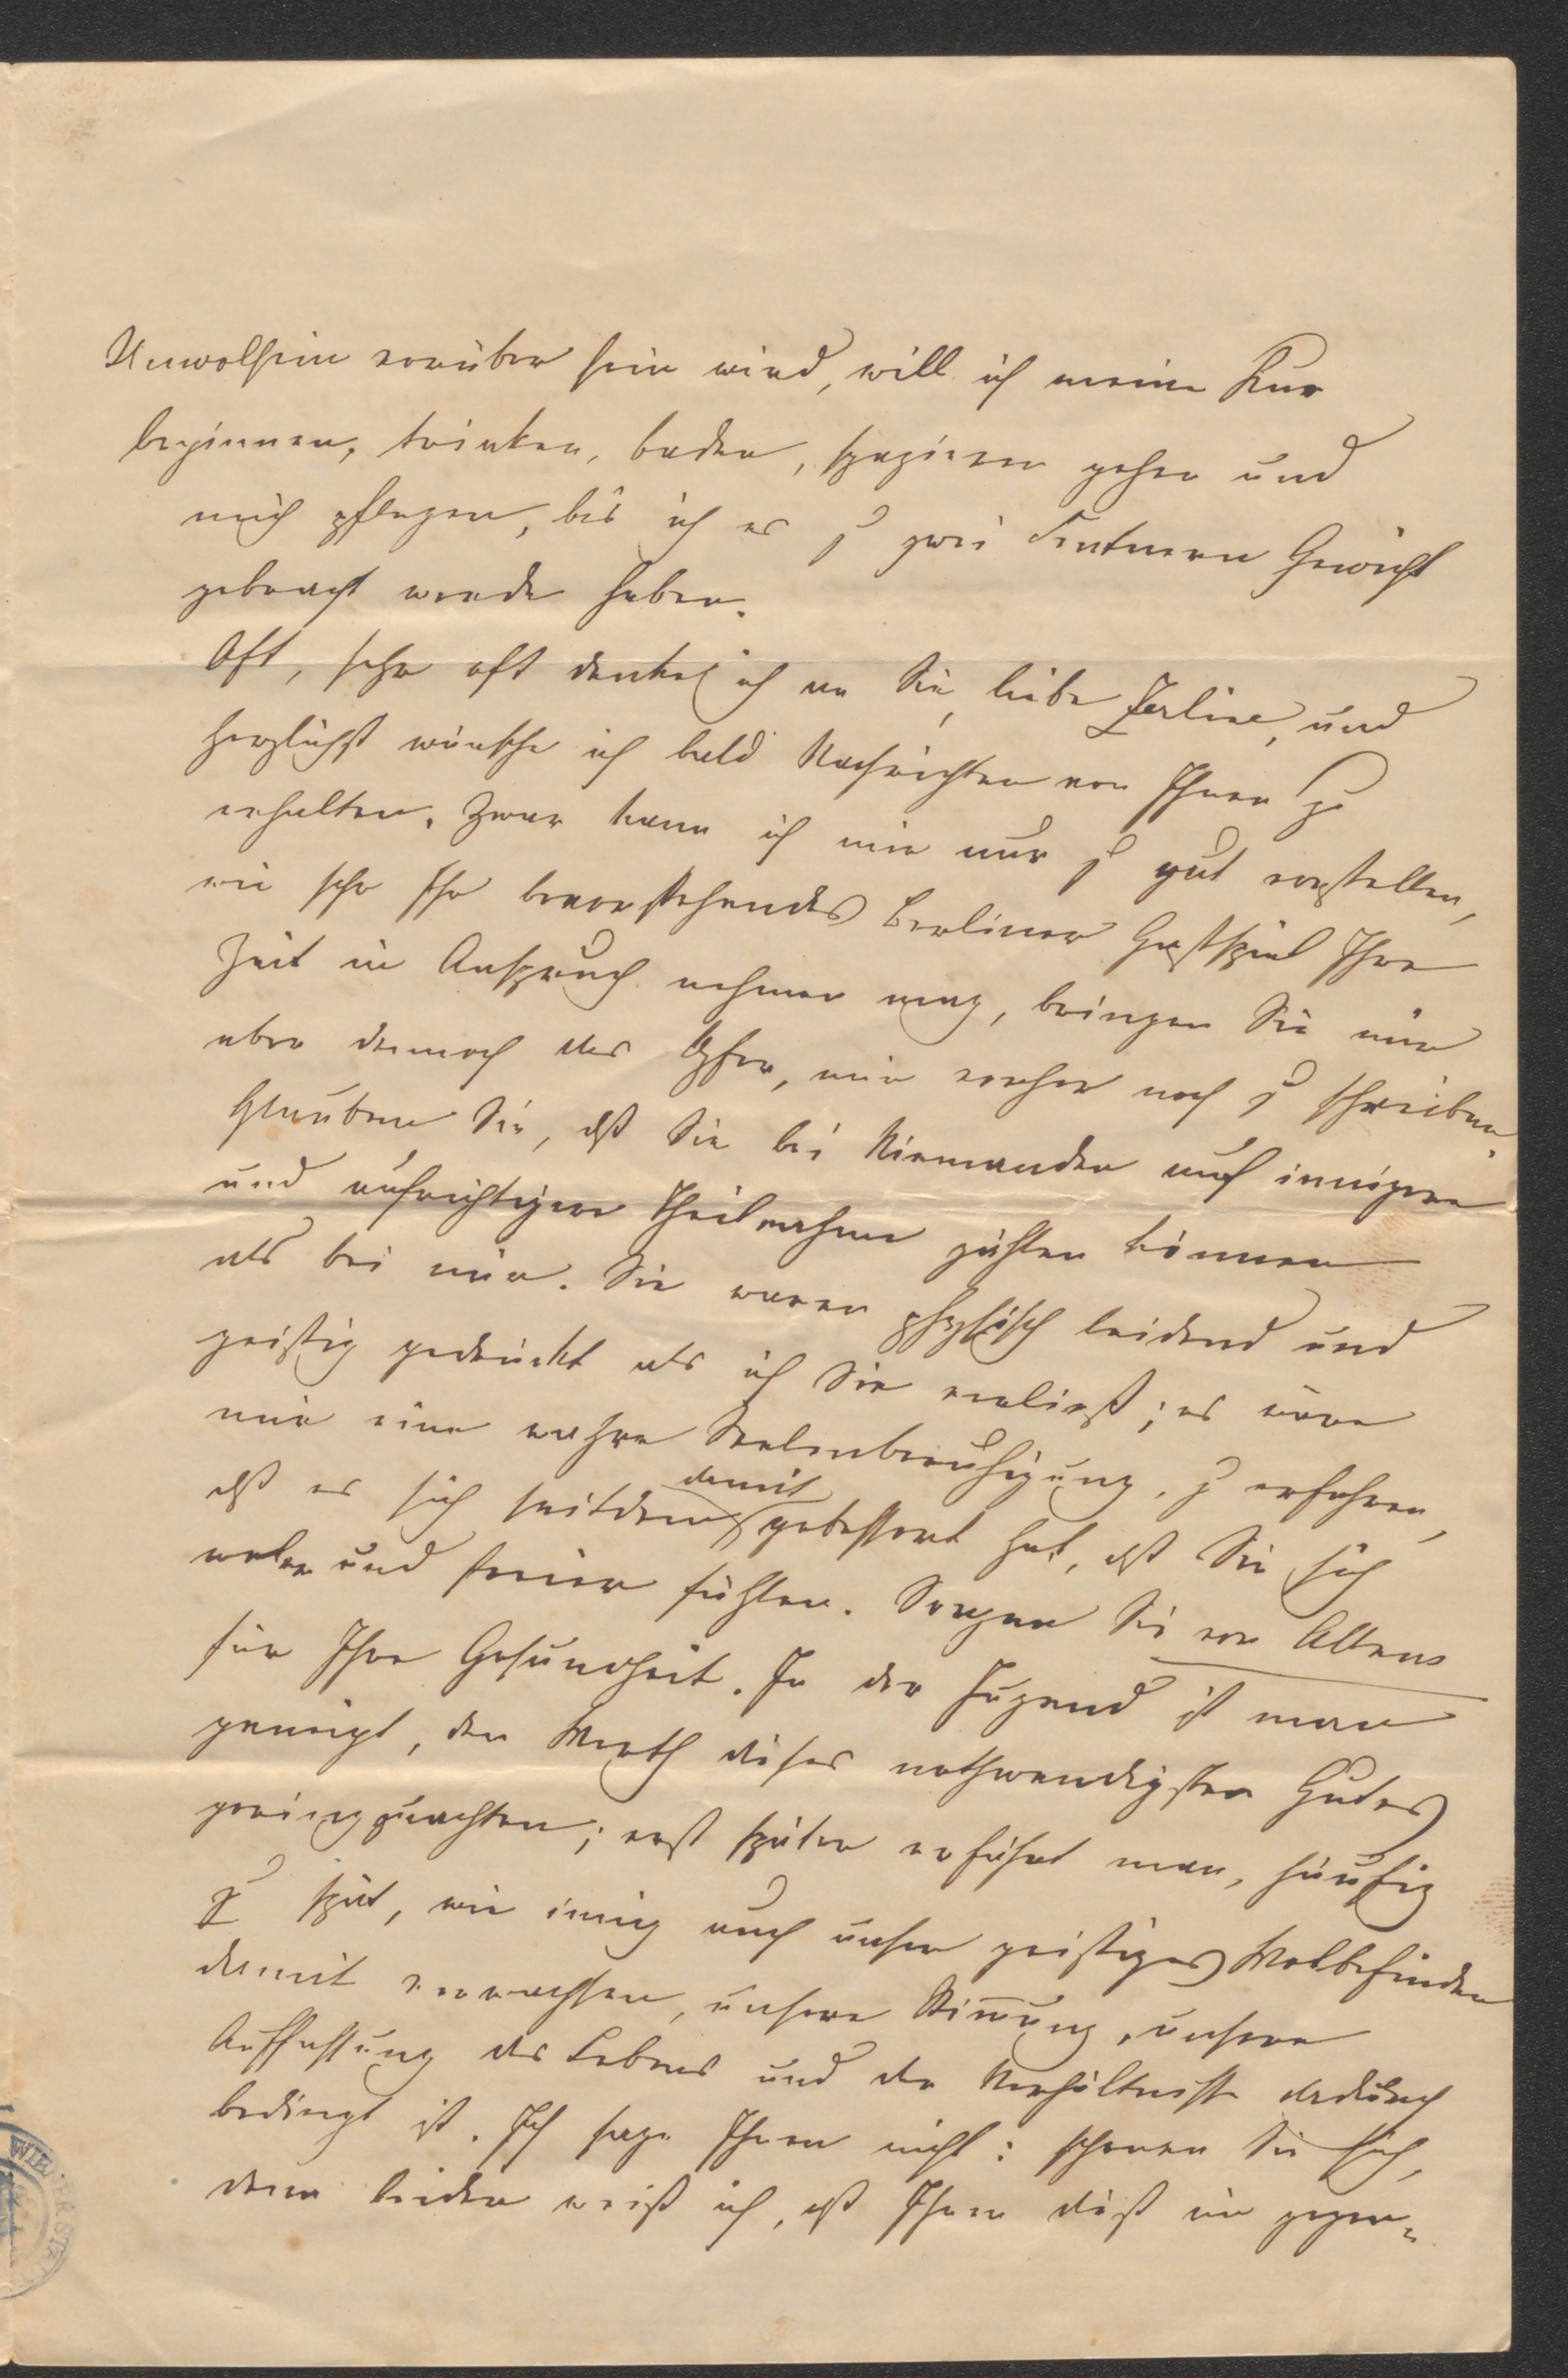 Unwolsein vorüber sein wird, will ich meine Kur
beginnen, trinken, baden, spazieren gehen und
mich pflegen, bis ich es zu zwei Centnern Gewicht
gebracht werde haben.
Oft, sehr oft denke ich an Sie, liebe Zerline, und
herzlichst wünsche ich bald Nachrichten von Ihnen zu
erhalten. Zwar kann ich mir nur zu gut vorstellen,
wie sehr Ihr bevorstehendes Berliner Gastspiel Ihre
Zeit in Anspruch nehmen mag, bringen Sie mir
aber dennoch das Opfer, mir vorher noch zu schreiben.
Glauben Sie, dß Sie bei Niemanden auf innigere
und aufrichtigere Theilnahme zählen können
als bei mir. Sie waren physisch leidend und
geistig gedrückt als ich Sie verließ; es wäre
mir eine wahre Seelenberuhigung, zu erfahren,
dß es sich seitdem damit gebessert hat, dß Sie sich
woler und freier fühlen. Sorgen Sie vor Allem
für Ihre Gesundheit. In der Jugend ist man
geneigt, den Werth dieses nothwendigsten Gutes
geringzuachten; erst später erfährt man, häufig
zu spät, wie innig auch unser geistiges Wolbefinden
damit verwachsen, unsere Stimung, unsere
Auffassung des Lebens und der Verhältnisse dadurch
bedingt ist. Ich sage Ihnen nicht: schonen Sie sich,
denn leider weiß ich, dß Ihnen dieß im gegen-